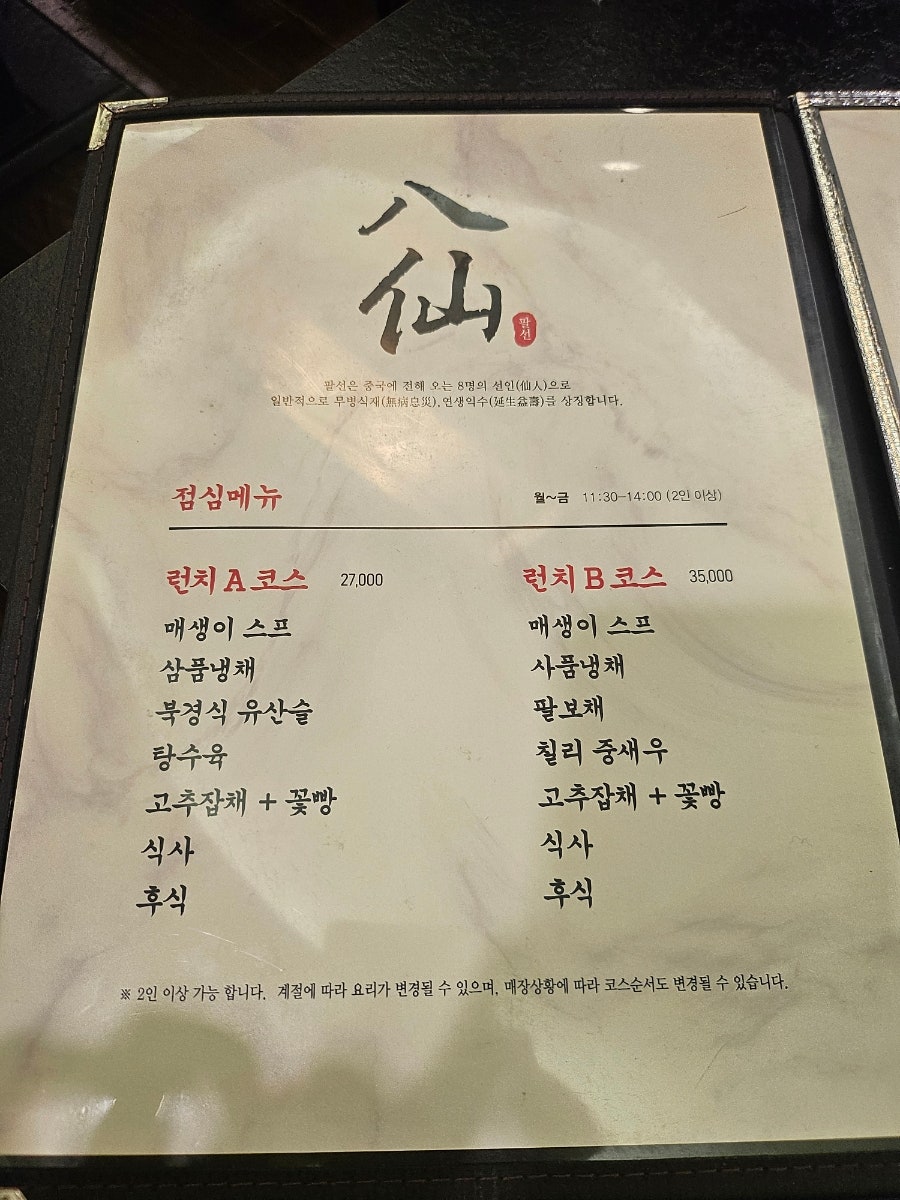 八仙
팔선
팔선은 중국에 전해 오는 8명의 선인(仙人)으로
일반적으로 무병식재(無病息災), 연생익수(延生益壽)를 상징합니다.
점심메뉴 월~금 11:30-14:00 (2인 이상)
런치 A 코스 27,000
매생이 스프
삼품냉채
북경식 유산슬
탕수육
고추잡채 + 꽃빵
식사
후식
런치 B 코스 35,000
매생이 스프
사품냉채
팔보채
칠리 중새우
고추잡채 + 꽃빵
식사
후식
※ 2인 이상 가능 합니다. 계절에 따라 요리가 변경될 수 있으며, 매장상황에 따라 코스순서도 변경될 수 있습니다.